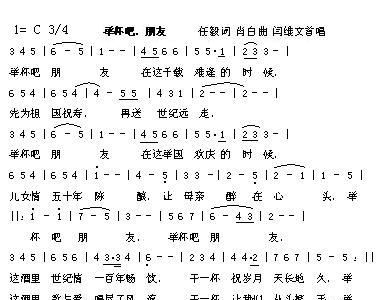 1= C 3/4 举杯吧，朋友 任毅词 肖白曲 闫维文首唱
3 4 5 | 6 - 5 | 1 - - | 4 5 6 6 | 5 5 · 1 | 2 3 3 - |
举杯吧 朋 友 在这千载 难逢的 时 候，
6 5 4 | 6 5 4 | 4 - 5 5 | 4 3 1 | 2 - - | 2 - - |
先为祖 国祝寿， 再送 世纪远 走，
3 4 5 | 6 - 5 | 1 - - | 4 5 6 6 | 5 5 · 1 | 2 3 3 - |
举杯吧 朋 友 在这举国 欢庆的 时 候，
6 5 4 | 1 - - | 4 - 5 | 3 3 - | 2 - 5 | 2 - 1 | 1 - 5 |
儿女情 五十年 陈 酿，让 母亲 醉 在 心 头，举
||: 1 - 1 | 7 - 5 | 3 - - | 5 6 7 | 6 - 4 3 | 2 - - |
杯 吧 朋 友， 举杯吧 朋 友，
3 4 5 | 6 5 6 | 4 3 · 3 4 | 6 - - | 2 3 4 | 4 4 · 2 | 7 6 7 | 1 - 5 |
这酒里 世纪情 一百年畅 饮， 干一杯 祝岁月 天长地 久，举